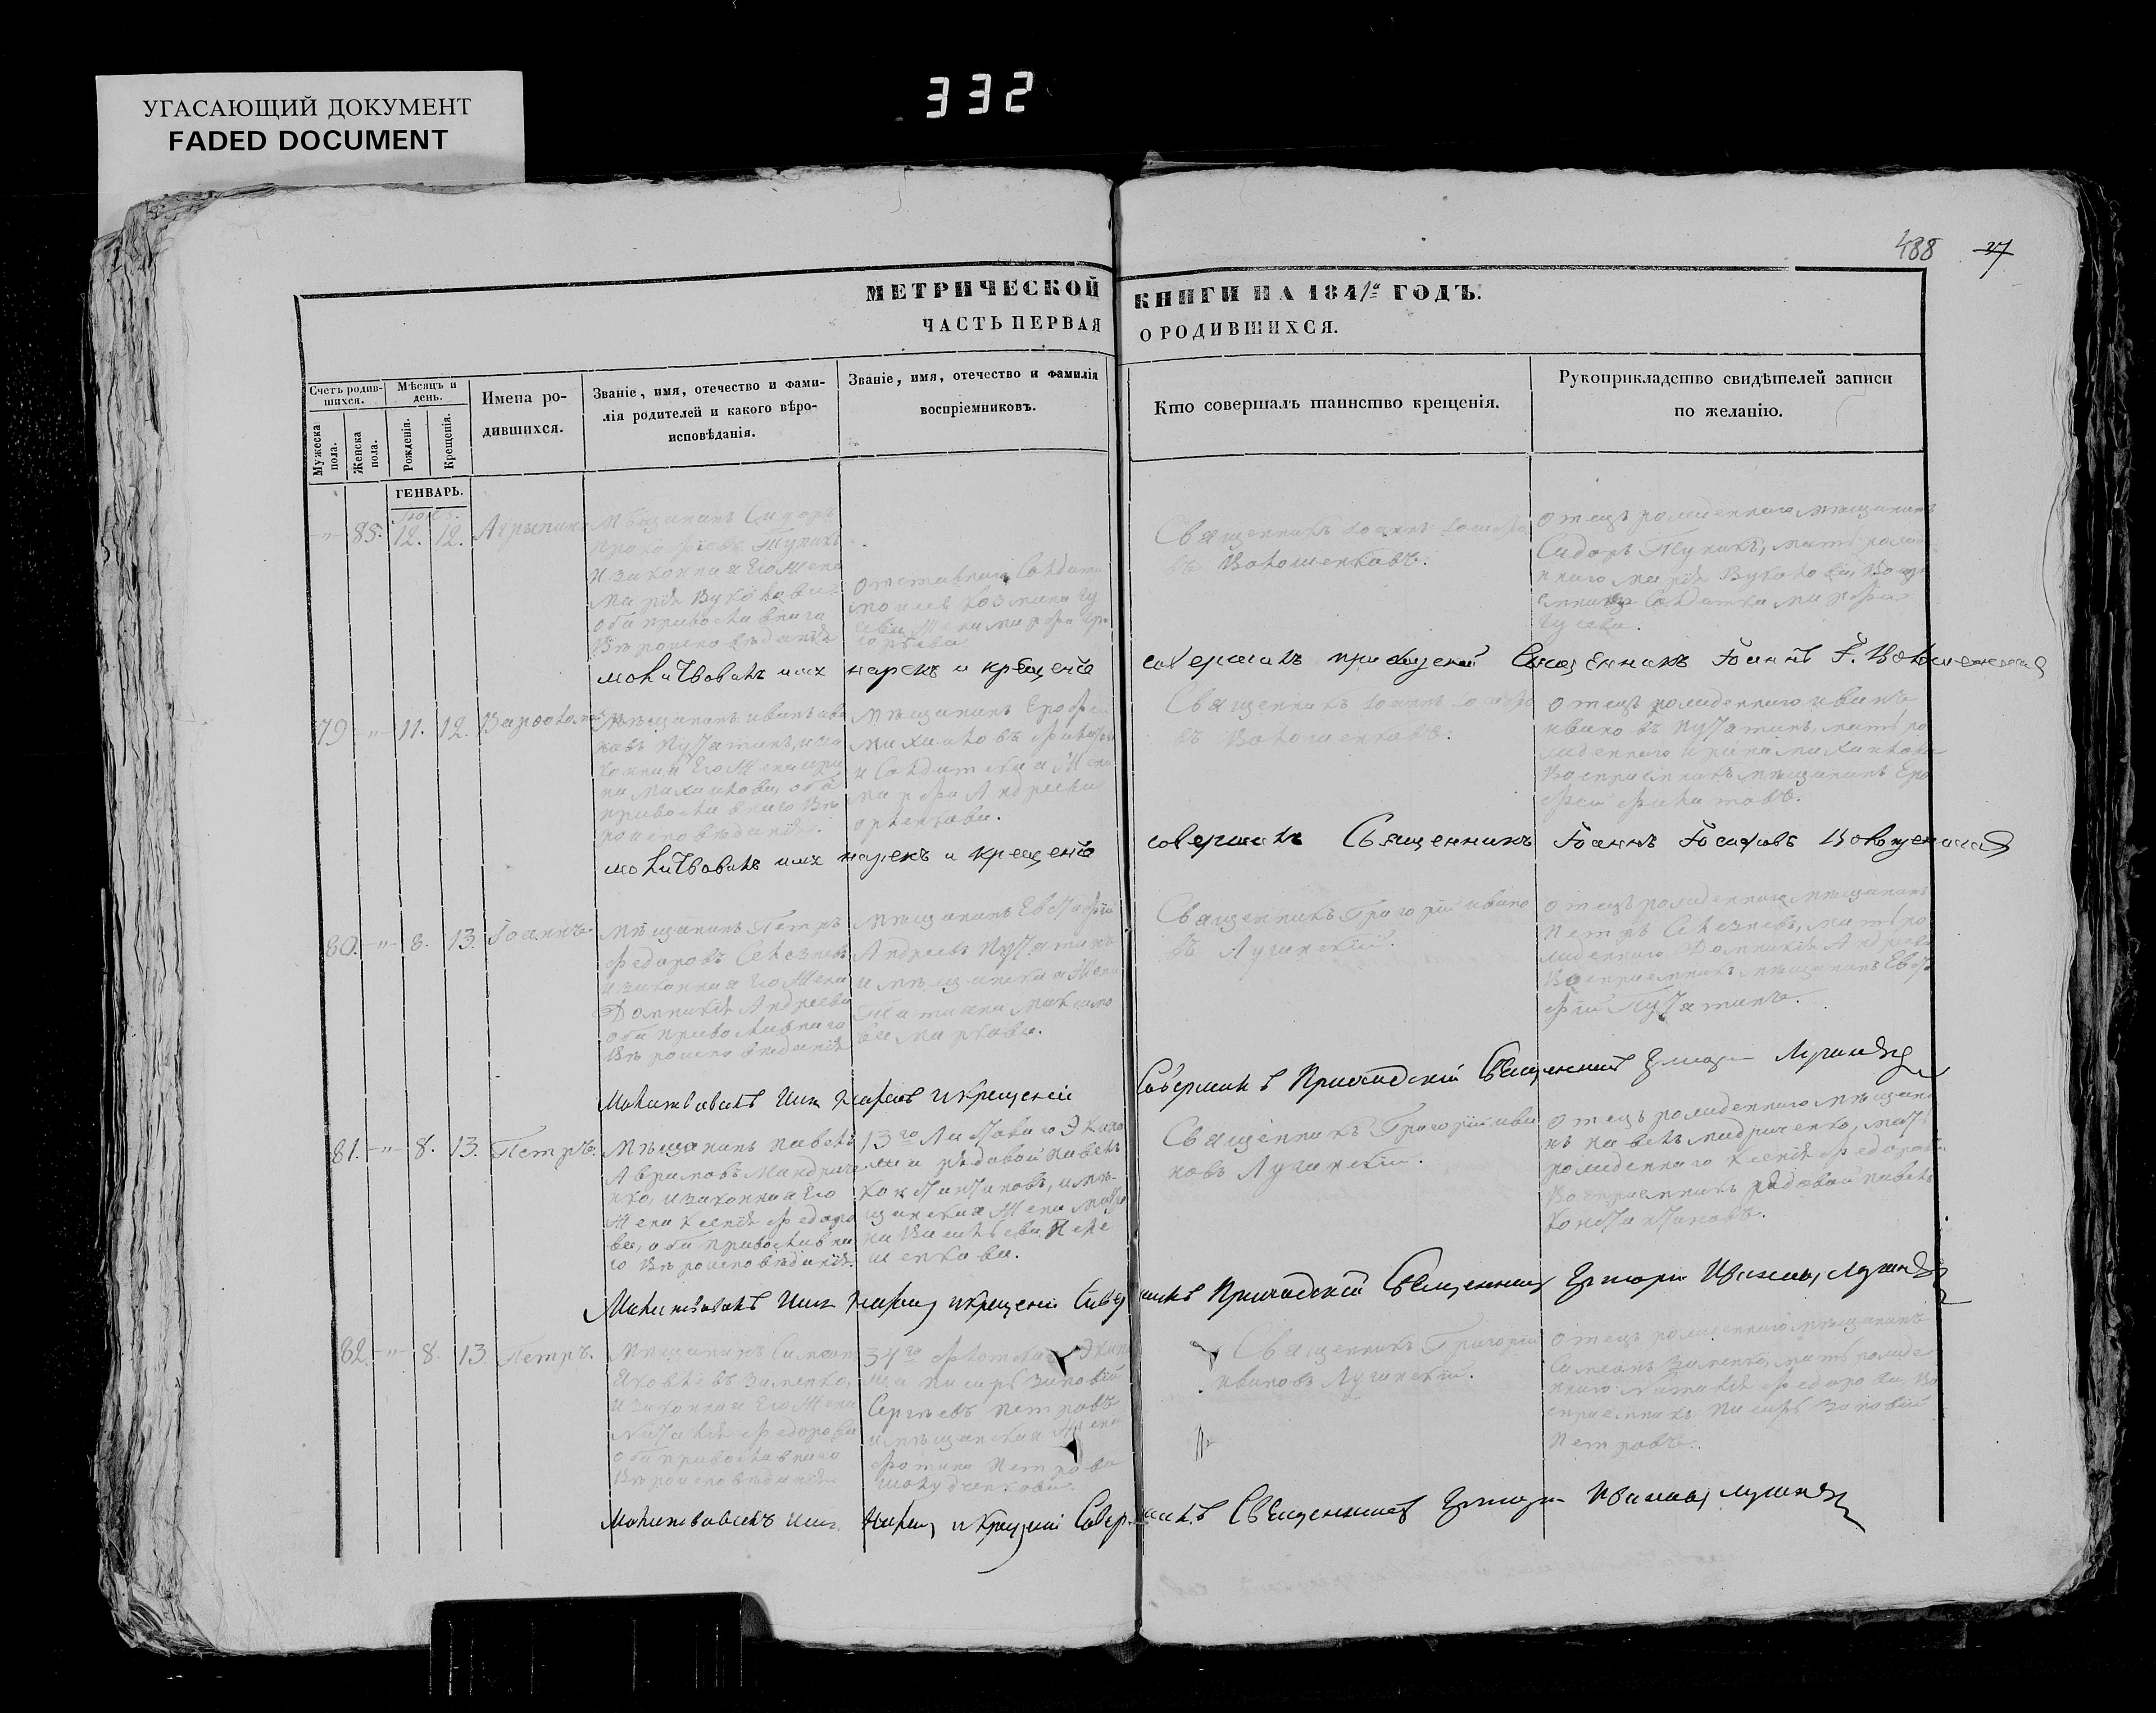 УГАСАЮЩИЙ ДОКУМЕНТ
FADED DOCUMENT
332
488 27
МЕТРИЧЕСКОЙ КНИГИ НА 1841а ГОДЪ.
ЧАСТЬ ПЕРВАЯ О РОДИВШИХСЯ.
Счетъ родив-
шихся.
Мужеска пола.
Женска пола.
Мѣсяцъ и
день.
Рожденія.
Крещенія.
Имена ро-
дившихся.
Званіе, имя, отечество и фами-
лія родителей и какого вѣро-
исповѣданія.
Званіе, имя, отечество и фамилія
воспріемниковъ.
Кто совершалъ таинство крещенія.
Рукоприкладство свидѣтелей записи
по желанію.
ГЕНВАРЬ.
-"- 85. 12. 12. Агрыпина
Мѣщанинъ Сидоръ
Прокофіевъ Тупикъ
и законная Его Жена
Марія Вуколова
оба православнаго
Вѣроисповѣданія
отставнаго Солдата
Моисея Козмина
Жена Марфа
Священникъ Іоаннъ
въ Волошенковъ.
отецъ рожденнаго мѣщанинъ
Сидоръ Тупикъ, мать рожде
ннаго Марія Вуколова, Воспр
емница Солдатка Марфа
молитвовалъ имя нарекъ и крещеніе совершилъ приходской Священникъ Іоаннъ І.
79 -"- 11. 12. Варфоломей
Мѣщанинъ Иванъ Ива
новъ Пузатинъ, и за
конная Его Жена Ири
на Михайлова, оба
православнаго Вѣ
роисповѣданія.
Мѣщанинъ Ерофей
Михайловъ Филатовъ
и Солдатская Жена
Марфа Андреева
орленкова.
Священникъ Іоаннъ
въ Волошенковъ.
отецъ рожденнаго Иванъ
Ивановъ Пузатинъ, мать ро
жденнаго Ирина Михайлова
Воспріемникъ мѣщанинъ Еро
фей Филатовъ.
молитвовалъ имя нарекъ и крещеніе совершилъ Священникъ Іоаннъ Іосифовъ
80. -"- 8. 13. Іоаннъ
Мѣщанинъ Петръ
Федоровъ Селезневъ
и законная Его Жена
Домникія Андреева
оба православнаго
Вѣроисповѣданія
Мѣщанинъ Евстафій
Андреевъ Пузатинъ
и мѣщанская Жена
Татиана Максимо
ва Маркова.
Священникъ Григорій Ивано
въ Лучинскій.
отецъ рожденнаго мѣщанинъ
Петръ Селезневъ, мать ро
жденнаго Домникія Андреева
Воспріемникъ мѣщанинъ Евста
фій Пузатинъ.
Молитвовалъ Имя нарекъ и крещеніе Совершилъ Приходскій Священникъ Григорій Лучинскій
81. -"- 8. 13. Петръ.
Мѣщанинъ Павелъ
Аврамовъ Мандриче
нко, и законная Его
Жена Ксенія Федоро
ва, оба православна
го Вѣроисповѣданія.
13го Ластоваго Экипа
жа рядовой Павелъ
Константиновъ, и мѣ-
щанская Жена
на Васильева
шенкова.
Священникъ Григорій Ива
новъ Лучинскій.
отецъ рожденнаго мѣщани
нъ Павелъ Мандриченко, мать
рожденнаго Ксенія Федорова
Воспріемникъ рядовой Павелъ
Константиновъ.
Молитвовалъ Имя нарекъ и крещеніе Совершилъ Приходской Священникъ Григорій Ивановъ Лучинскій
82. -"- 8. 13. Петръ.
Мѣщанинъ Симеонъ
Яковлевъ Зименко,
и законная Его Жена
Наталія Федорова
оба православнаго
Вѣроисповѣданія
34го флотскаго Экипа
жа писарь Зиновій
Сергѣевъ Петровъ
и мѣщанская Жена
Фотина Петрова
Священникъ Григорій
Ивановъ Лучинскій.
отецъ рожденнаго мѣщанинъ
Симеонъ Зименко, мать рожде
ннаго Наталія Федорова, Во
спріемникъ писарь Зиновій
Петровъ.
Молитвовалъ имя нарекъ и крещеніе Совершилъ Священникъ Григорій Ивановъ Лучинскій